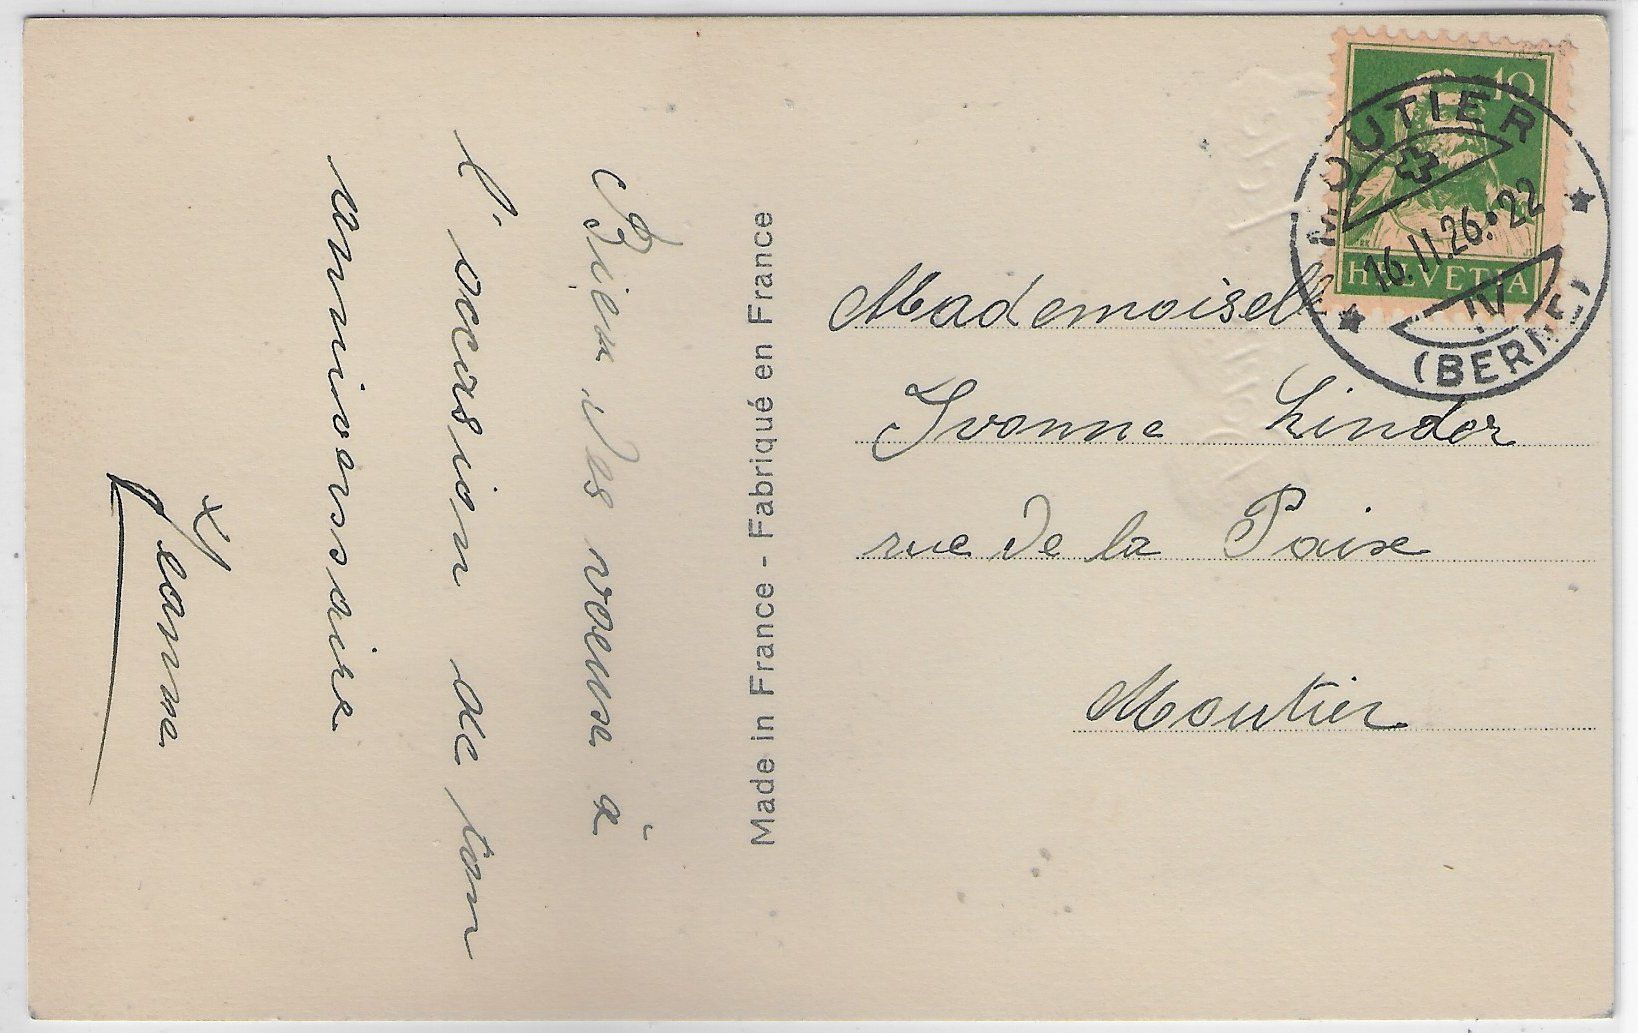 Bien des voeux à
l'occasion de ton
anniverssaire
Jeanne
Made in France - Fabriqué en France
10
HELVETIA
MOUTIER
16.II.26.-22
IV
(BERNE)
Mademoisell
Yvonne Linder
rue de la Paix
Moutier